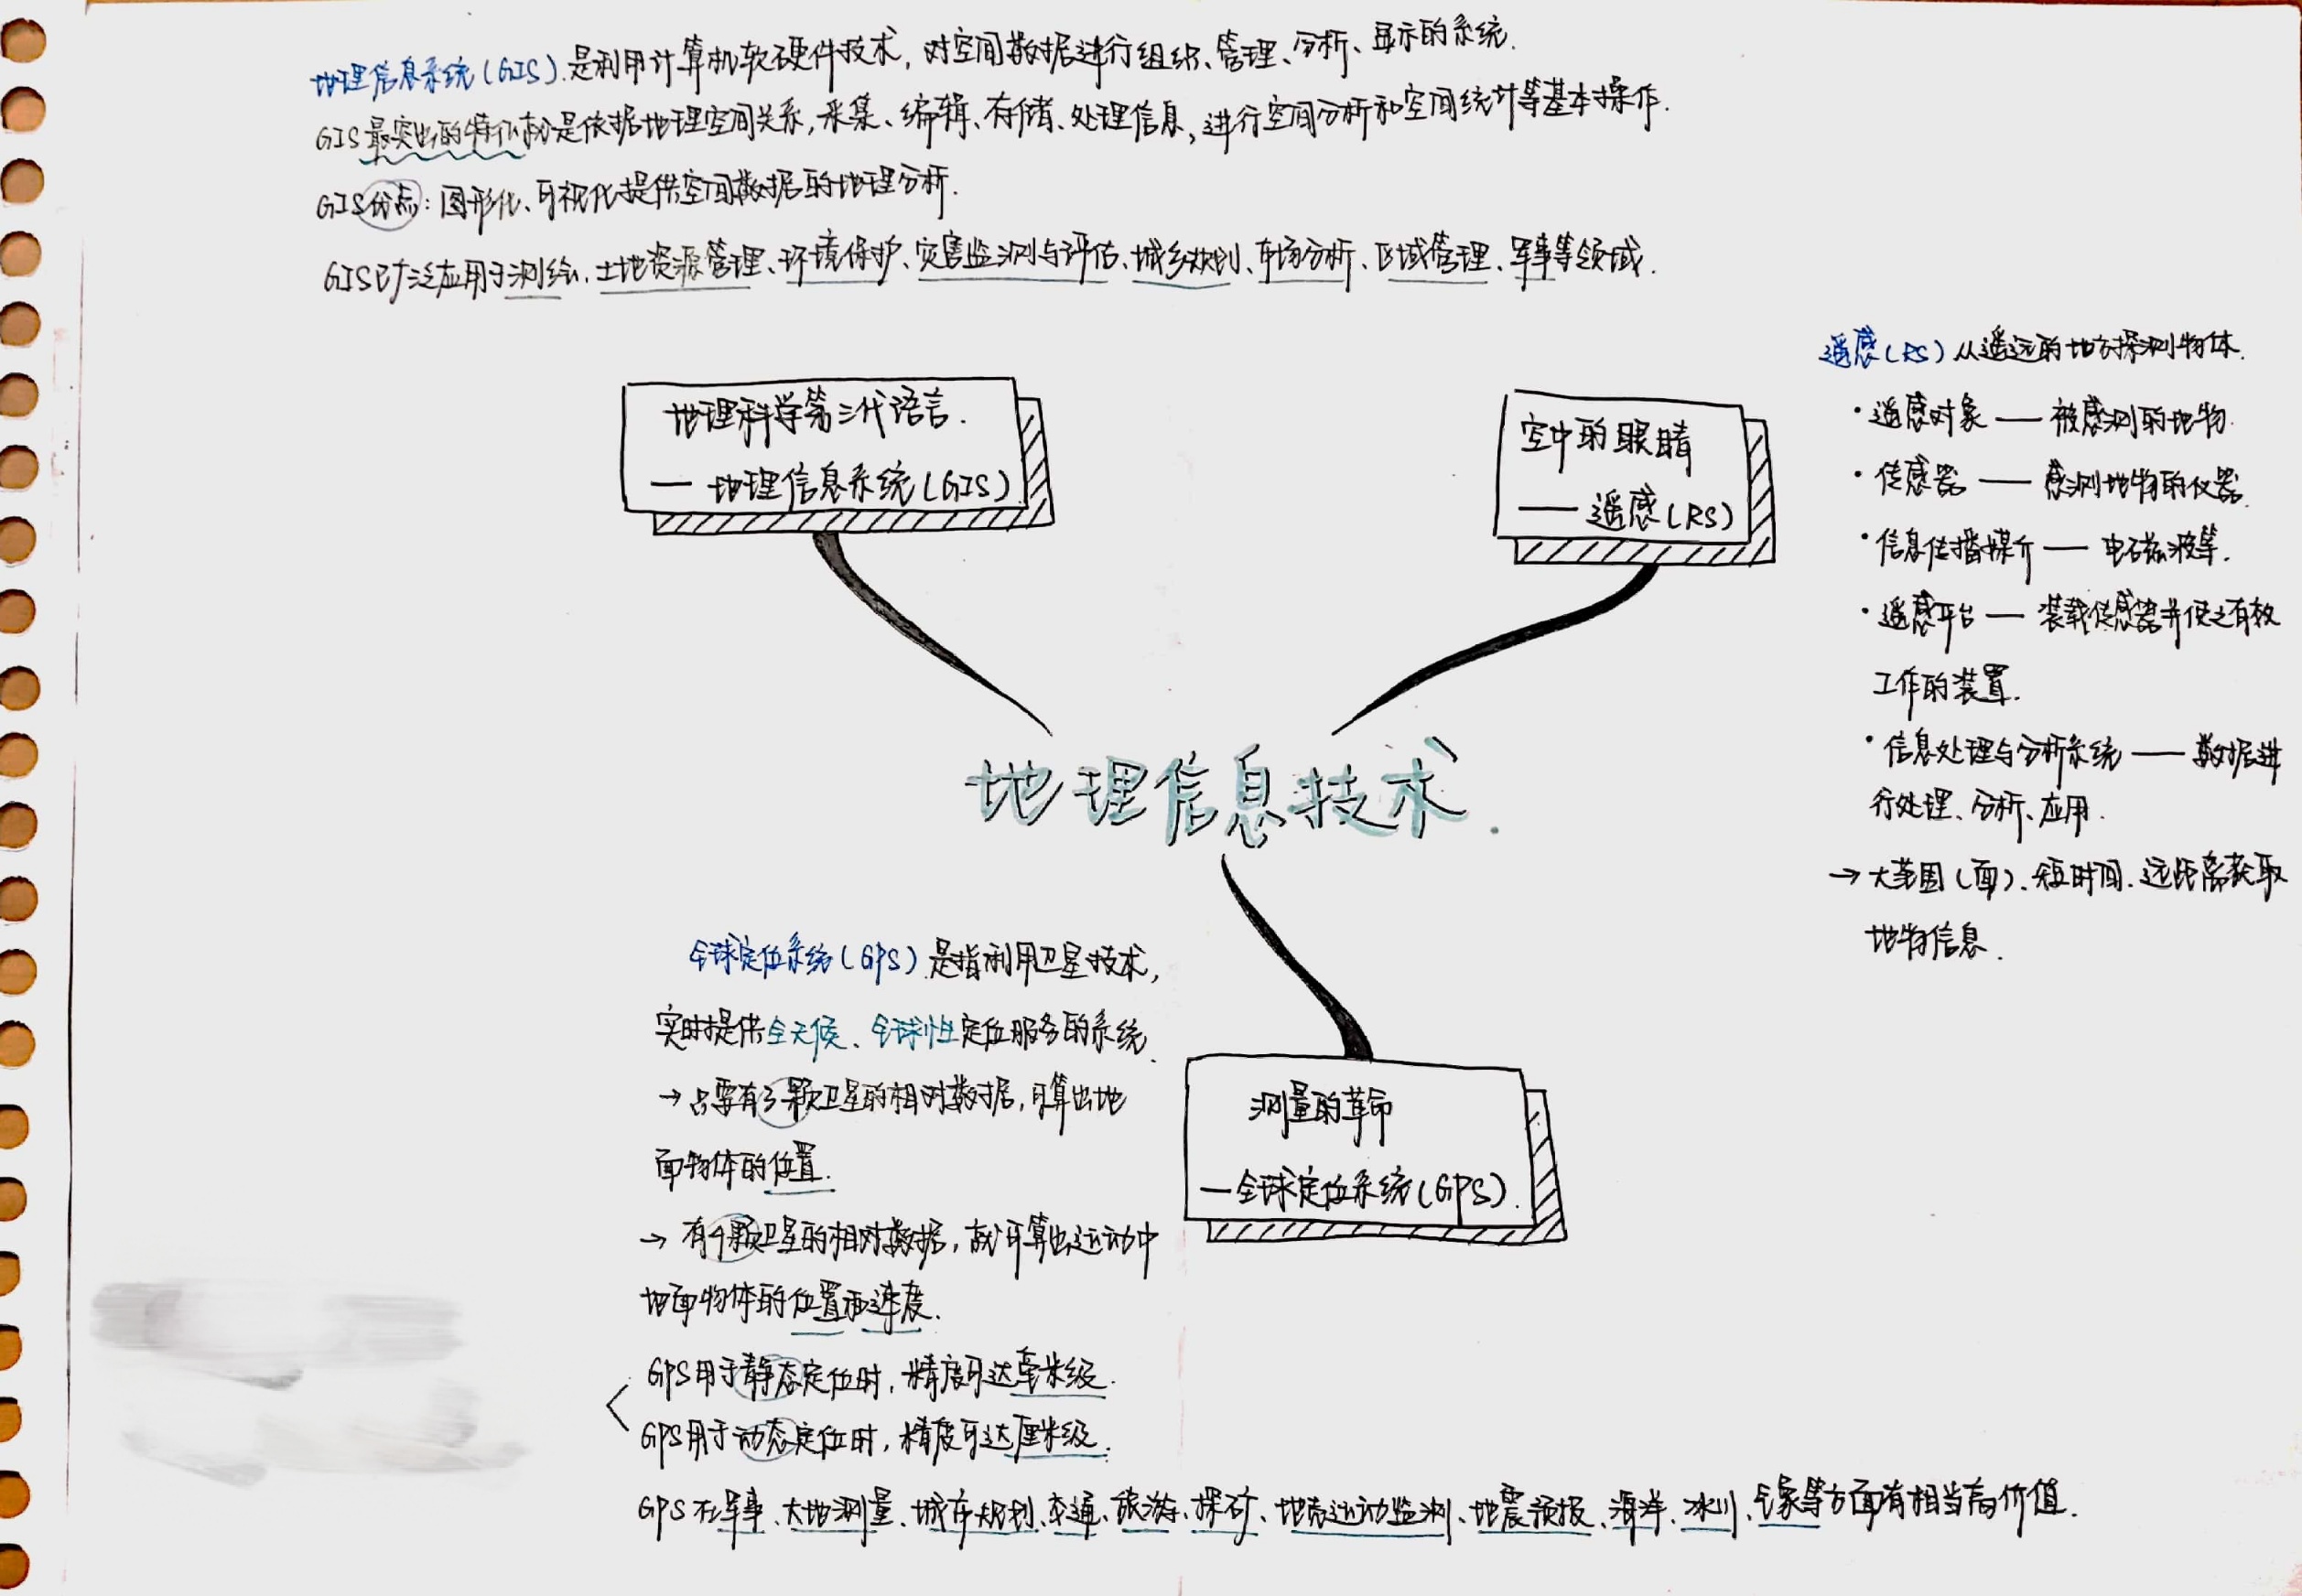 地理信息系统(GIS).是利用计算机软硬件技术,对空间数据进行组织、管理、分析、显示的系统.
GIS最突出的特征是依据地理空间关系,采集、编辑、存储、处理信息,进行空间分析和空间统计等基本操作.
GIS优点:图形化、可视化提供空间数据的地理分析.
GIS已广泛应用于测绘、土地资源管理、环境保护、灾害监测与评估、城乡规划、市场分析、区域管理、军事等领域.
地理科学第三代语言.
— 地理信息系统(GIS)
空中的眼睛
—— 遥感(RS)
遥感(RS)从遥远的地方探测物体.
·遥感对象 —— 被感测的地物.
·传感器 —— 感测地物的仪器.
·信息传播媒介 —— 电磁波等.
·遥感平台 —— 装载传感器并使之有效
工作的装置.
·信息处理与分析系统 —— 数据进
行处理、分析、应用.
→大范围(面).短时间.远距离获取
地物信息.
地理信息技术.
全球定位系统(GPS).是指利用卫星技术,
实时提供全天候、全球性定位服务的系统.
→只要有3颗卫星的相对数据,可算出地
面物体的位置.
→有4颗卫星的相对数据,就可算出运动中
地面物体的位置和速度.
GPS用于静态定位时,精度可达毫米级.
GPS用于动态定位时,精度可达厘米级.
测量的革命
—全球定位系统(GPS).
GPS在军事、大地测量、城市规划、交通、旅游、探矿、地壳运动监测、地震预报、海洋、冰川、气象等方面有相当高价值.